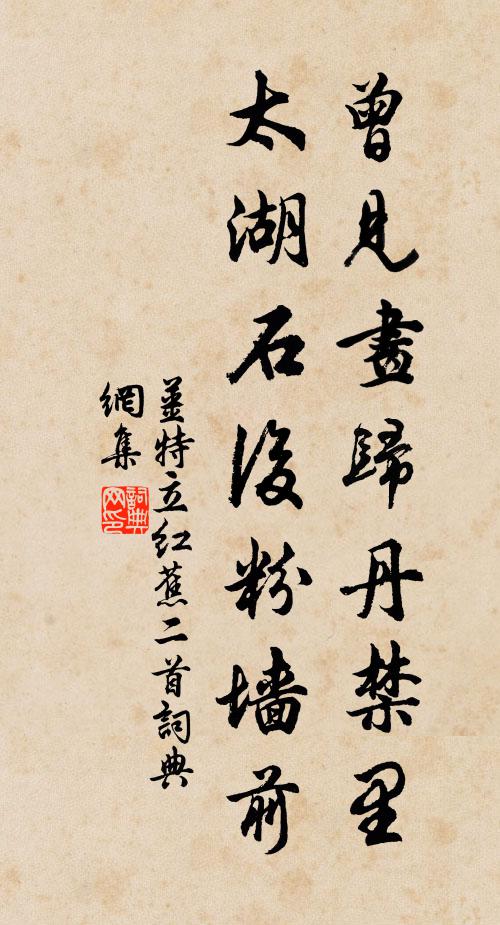 曾見畫歸丹禁里
太湖石後粉墻前
薑特立紅蕉二首詞典
網集
詞典网印